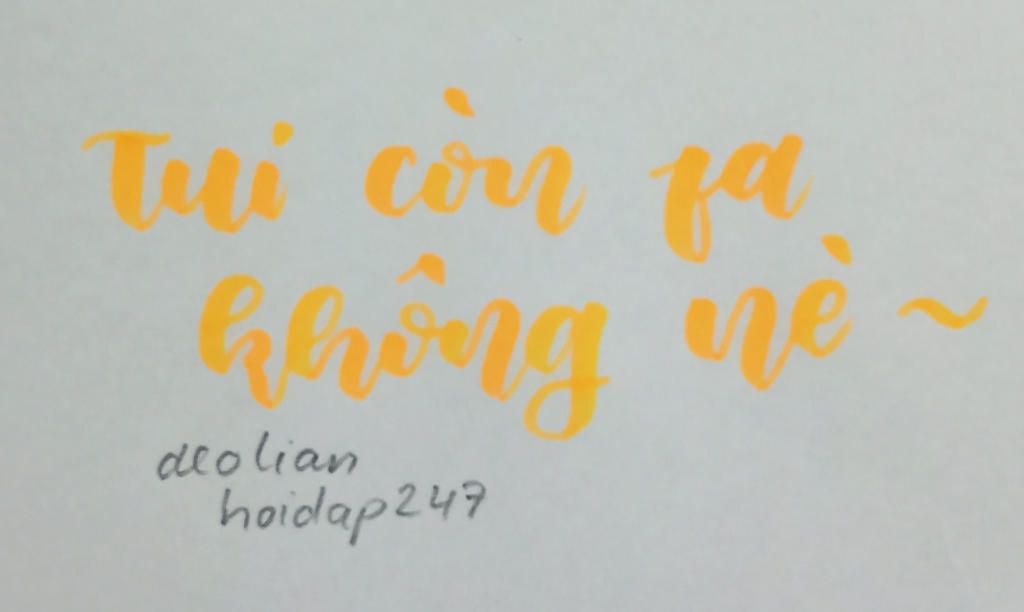 Tui còn fa
không nè ~
aeolian
hoidap247